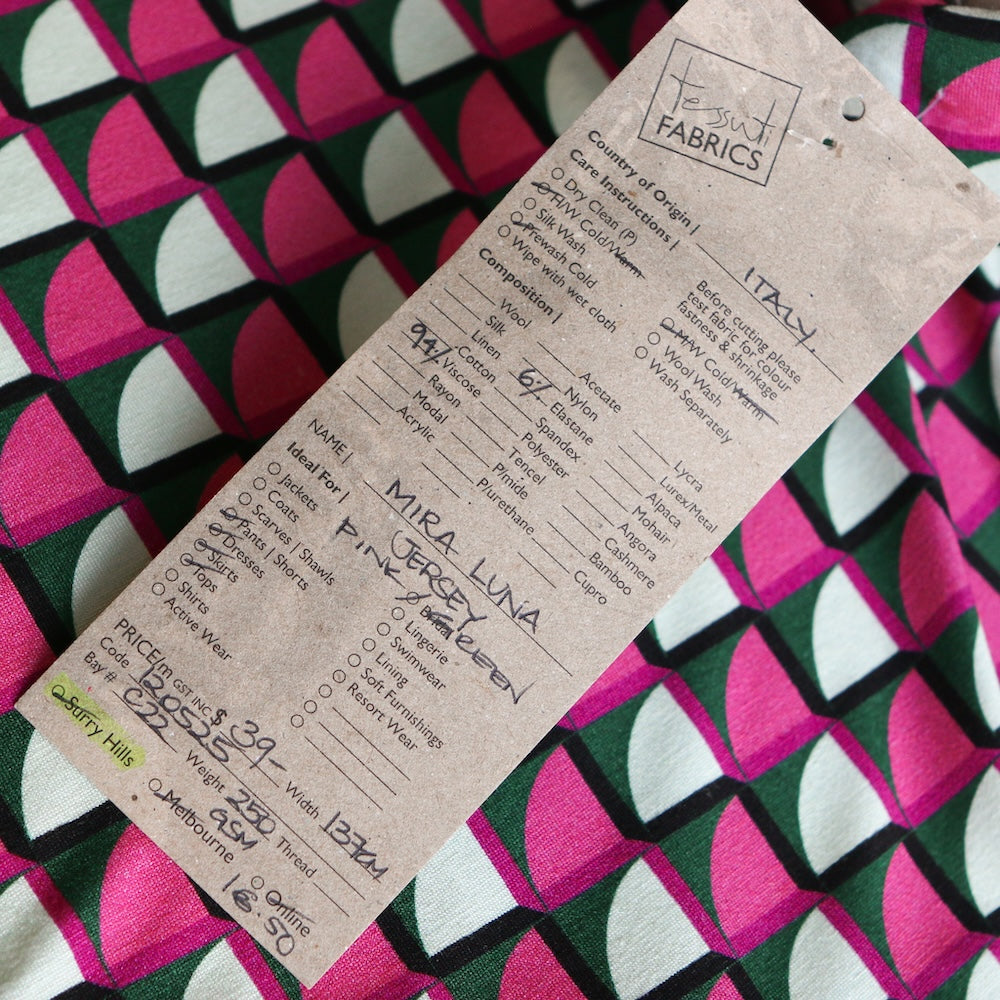 Tessuti
FABRICS
Country of Origin | ITALY.
Care Instructions |
Before cutting please
test fabric for colour
fastness & shrinkage
Dry Clean (P)
H/W Cold/Warm
Silk Wash
Prewash Cold
Wipe with wet cloth
M/W Cold/Warm
Wool Wash
Wash Separately
Composition |
Wool
Silk
Linen
Cotton
94% Viscose
Rayon
Modal
Acrylic
Acetate
Nylon
6% Elastane
Spandex
Polyester
Tencel
P/mide
P/urethane
Lycra
Lurex/Metal
Alpaca
Mohair
Angora
Cashmere
Bamboo
Cupro
NAME | MIRA LUNA
JERSEY
PINK/GREEN
Ideal For |
Jackets
Coats
Scarves | Shawls
Pants | Shorts
Dresses
Skirts
Tops
Shirts
Active Wear
Bridal
Lingerie
Swimwear
Lining
Soft Furnishings
Resort Wear
PRICE/m GST INC $ 39-
Code 120525
Bay # C22
Width 137CM
Weight 250
GSM
Thread
Surry Hills
Melbourne
Online
16.50